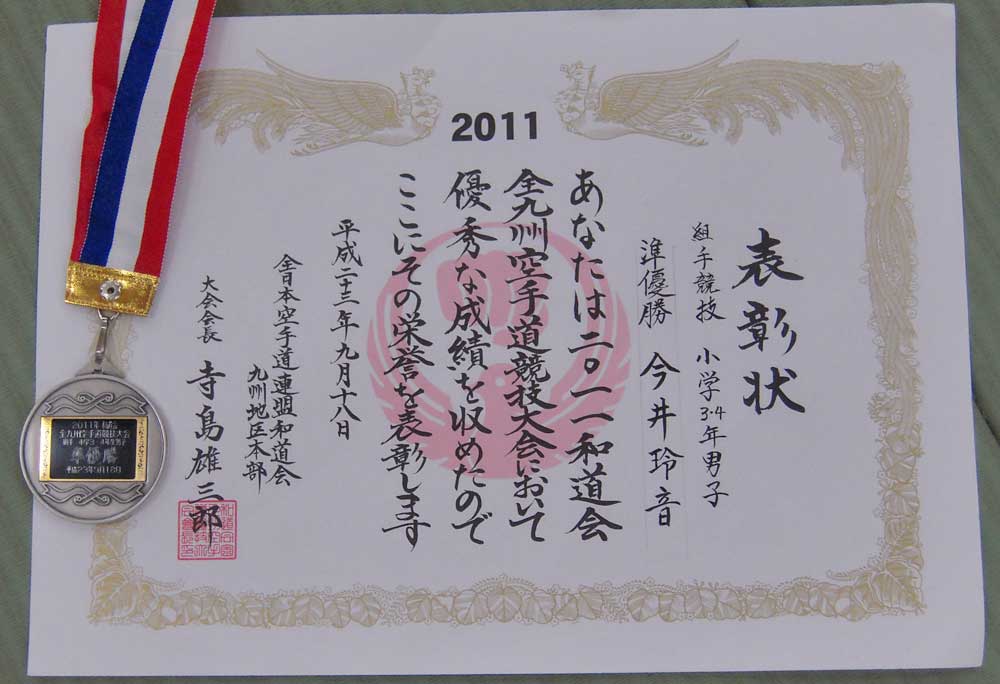 2011
表彰状
組手競技 小学3・4年男子
準優勝 今井玲音
あなたは二〇一一和道会
全九州空手道競技大会において
優秀な成績を収めたので
ここにその栄誉を表彰します
平成二十三年九月十八日
全日本空手道連盟和道会
九州地区本部
大会会長 寺島雄三郎
2011年和道会
全九州空手道競技大会
準優勝
平成23年9月18日